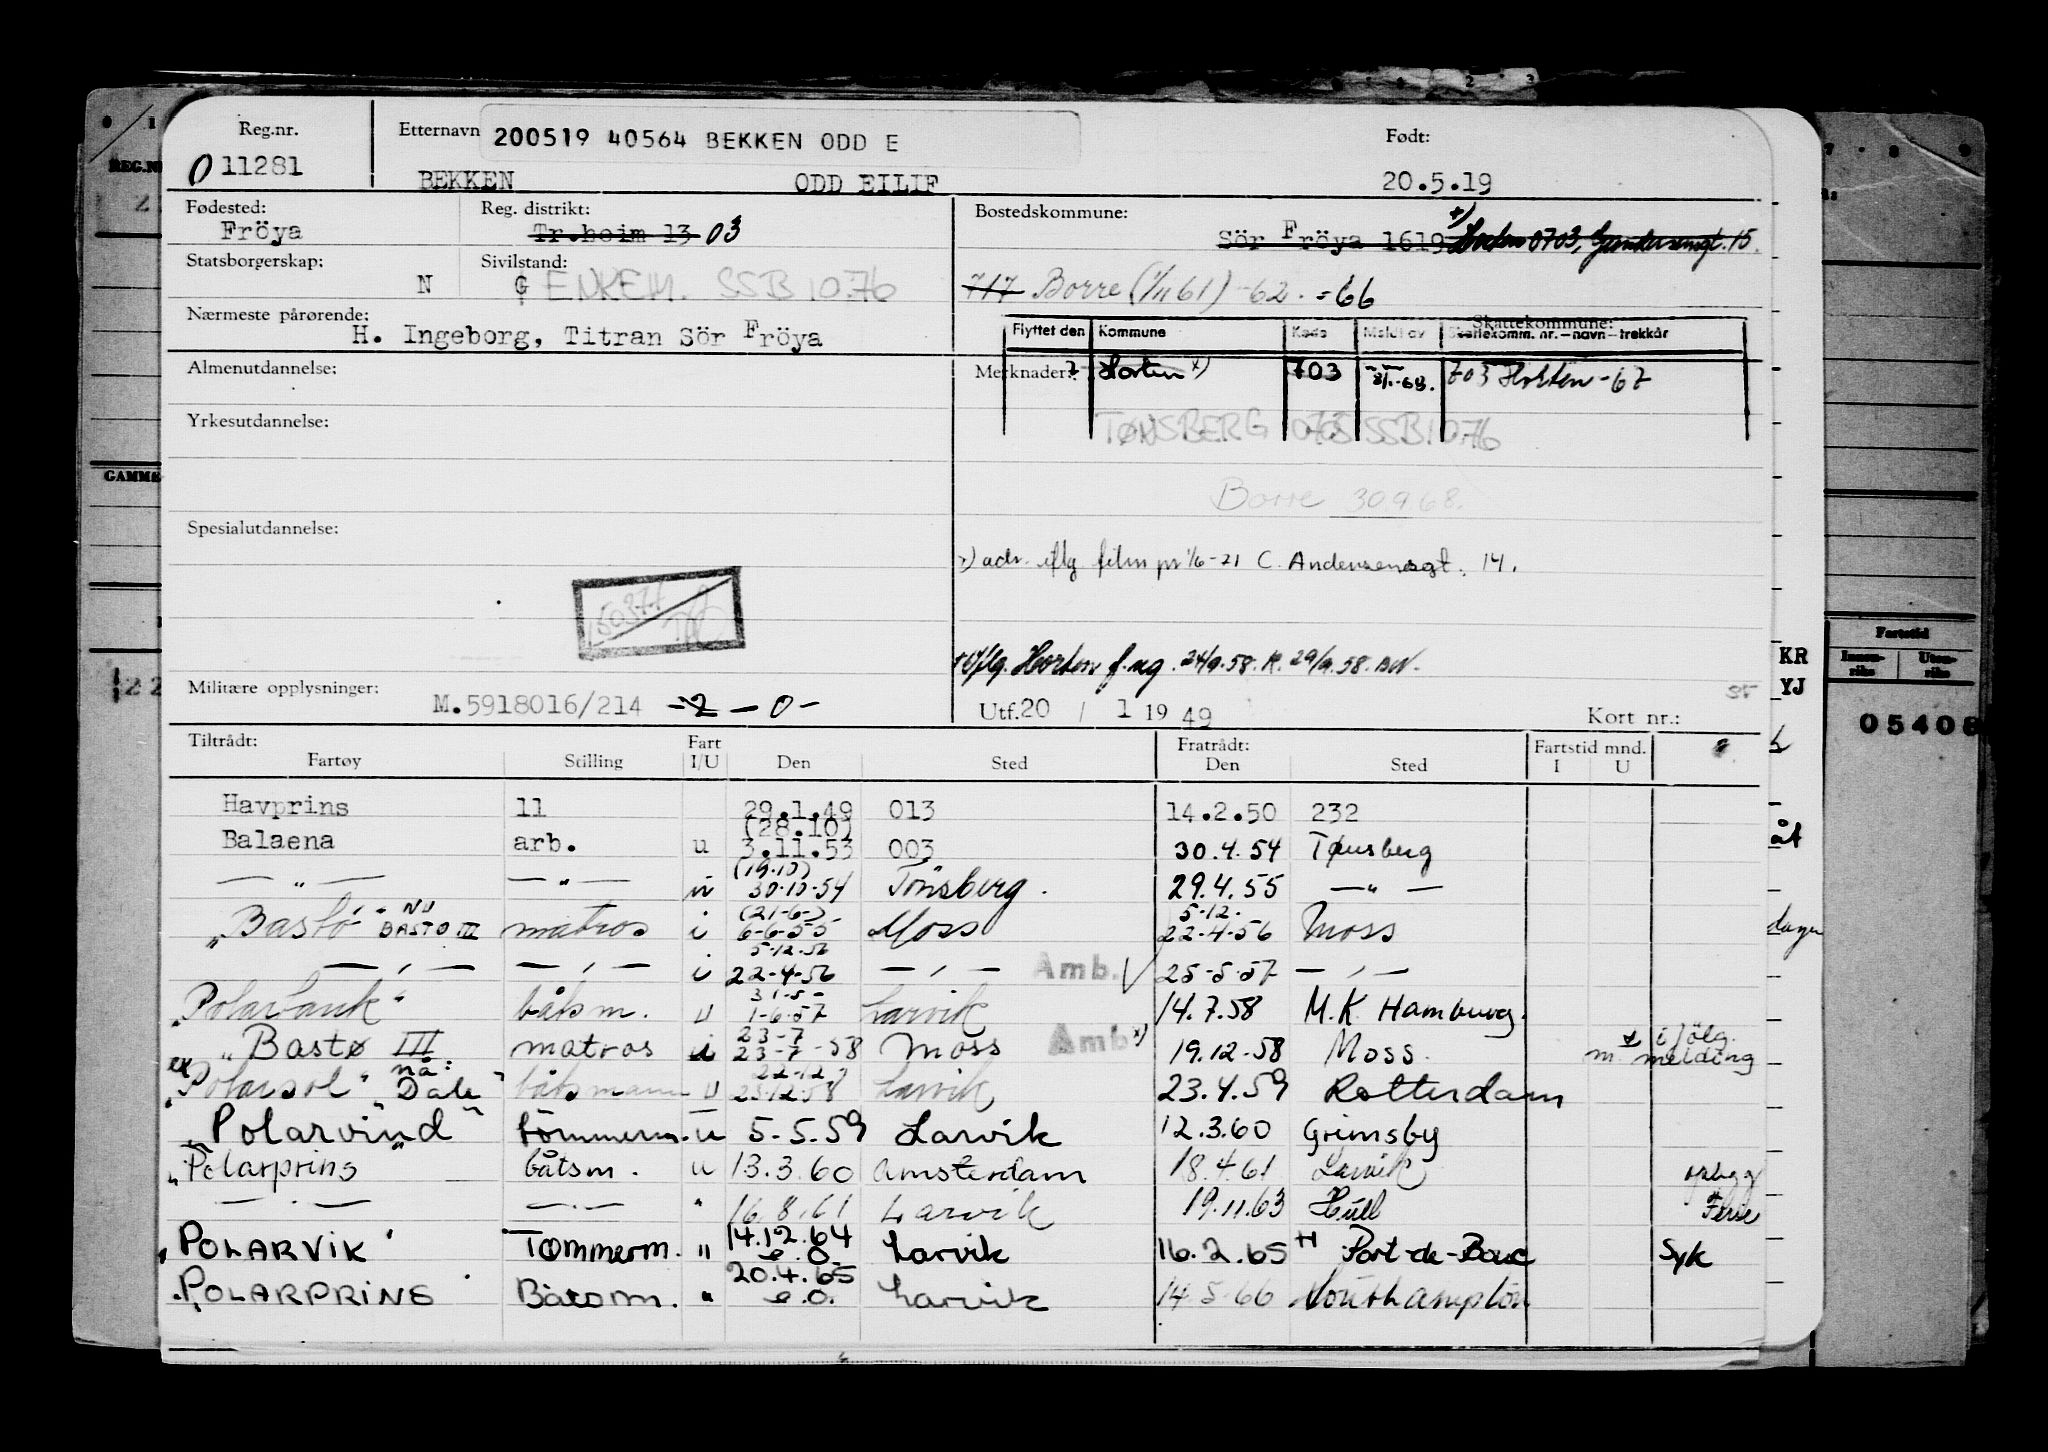 Reg.nr. Etternavn 200519 40564 BEKKEN ODD E Født:
O 11281 BEKKEN ODD EILIF 20.5.19
Fødested: Reg. distrikt: Bostedskommune:
Fröya Tr.heim 13 03 Sör Fröya 1619 +) Horten 0703, Gundersensgt. 15.
Statsborgerskap: N Sivilstand: G ENKEM. SSB 10.76
717 Borre (1/11 61) -62. =66
Nærmeste pårørende: H. Ingeborg, Titran Sör Fröya
Skattekommune:
Flyttet den Kommune Kode Meldt av Skattekomm. nr. – navn – trekkår
Almenutdannelse: Merknader: Horten x) 703 703 Horten -67
Yrkesutdannelse: TØNSBERG SSB 10.76
Borre 30968.
Spesialutdannelse:
x) adr. iflg. film pr 1/6-21 C. Andersensgt. 14.
50377
+ iflg. Horten f. ng. 24/9.58. K. 29/9.58. BW.
Militære opplysninger: M.5918016/214 -2 -0-
Utf. 20 / 1 19 49 Kort nr.: 35
Tiltrådt: Fart Fratrådt: Fartstid mnd.
Fartøy Stilling I/U Den Sted Den Sted I U
Havprins 11 29.1.49 013 14.2.50 232
(28.10)
Balaena arb. u 3.11.53 003 30.4.54 Tønsberg
(19.10)
— " — — " — u 30.10-54 Tönsberg. 29.4.55 — " —
NU (21-6-) 5-12-
"Bastø" BASTO III matros i 6-6-55 Moss 22-4-56 Moss
5-12.56
— " — — " — i 22-4-56 — " — Amb. 25-5-57 — " —
31-5-
"Polarbank" båtsm. u 1-6-57 Larvik 14.7.58 M.K. Hamburg.
23-7
"Bastø III matros i 23-7-58 Moss Amb x) 19.12-58 Moss. x i følg. m. melding
ex nå: 22-12
"Polarsol" "Dale" båtsmann u 23.12.58 Larvik 23.4.59 Rotterdam
"Polarvind" tömmerm. u 5.5.59 Larvik 12.3.60 Grimsby
"Polarprins" båtsm. u 13.3.60 Amsterdam 18.4.61 Larvik opplegg
— " — — " — " 16.8.61 Larvik 19.11.63 Hull Ferie
"POLARVIK" Tømmerm. " 14.12.64 e.o. Larvik 16.2.65 + Port-de-Bouc Syk
"POLARPRINS Båtsm. " 20.4.65 e.o. Larvik 14-5-66 Southampton
REG.NR
GAMME
KR
YJ
åt
dager
Fartstid
Innen-riks Uten-riks
05408